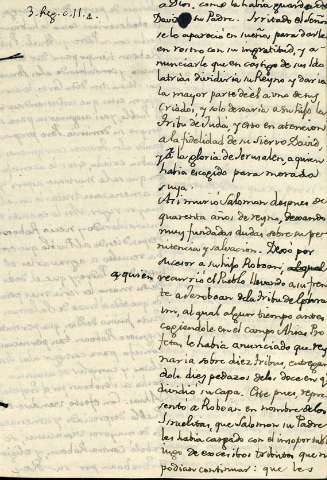 3. Reg. c. 11. 4.
a Dios, como le habia guardado
David su Padre. Irritado el Señor
se le apareció en sueños para darle
en rostro con su ingratitud, y a-
nunciarle que en castigo de sus Ido
latrias dividiria su Reyno y daria
la mayor parte de el a uno de sus
Criados, y solo dexaria a su hijo la
tribu de Judá, y esto en atencion
a la fidelidad de su siervo David,
y a la gloria de Jerusalen, a quien
habia escogido para morada
suya.
Asi murió Salomon despues de
quarenta años de reyno, dexando
muy fundadas dudas sobre su pe-
nitencia y salvacion. Dexó por
sucesor a su hijo Roboan,
a quien
recurrió el Pueblo llevando a su fren
te a Jeroboan de la tribu de Ephra
im, al qual algun tiempo antes
cogiendole en el campo Ahias Pro
feta, le habia anunciado que rey
naria sobre diez tribus, entregan
dole diez pedazos de los doce en q
dividió su capa. Este pues repre
sentó a Roboan en nombre de los
Israelitas, que Salomon su Padre
les habia cargado con el insoportable
yugo de tributos que no
podian continuar: que les